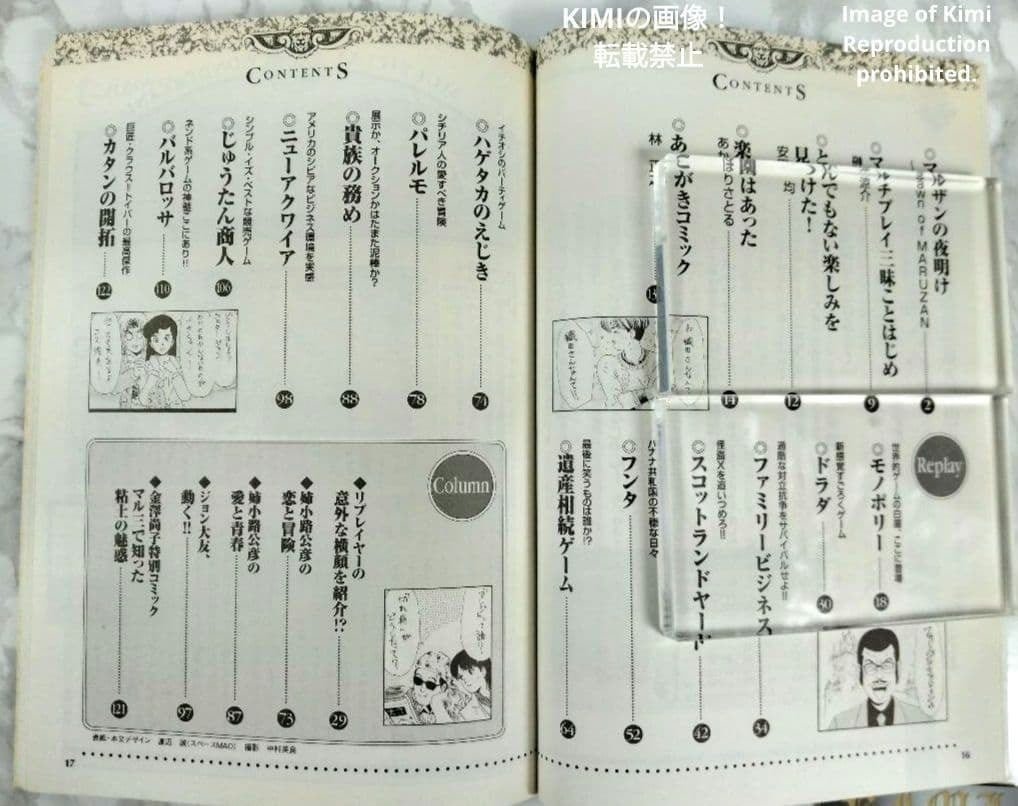 KIMIの画像！
転載禁止
Image of Kimi
Reproduction
prohibited.
CONTENTS
◎マルザンの夜明け
～Dawn of MARUZAN
2
◎マルチプレイ三昧ことはじめ
9
◎とんでもない楽しみを
見つけた！
安田 均
12
◎楽園はあった
あかほりさとる
14
◎あとがきコミック
林 正之
15
Replay
世界的ゲームの白眉、ここに登場
◎モノポリー
18
新感覚すごろくゲーム
◎ドラダ
30
過酷な対立抗争をサバイバルせよ!!
◎ファミリービジネス
34
怪盗Xを追いつめろ!!
◎スコットランドヤード
42
バナナ共和国の不穏な日々
◎フンタ
52
最後に笑うものは誰か!?
◎遺産相続ゲーム
64
16
CONTENTS
イチオシのパーティゲーム
◎ハゲタカのえじき
74
シチリア人の愛すべき冒険
◎パレルモ
78
展示か、オークションかはたまた泥棒か?
◎貴族の務め
88
アメリカのシビアなビジネス環境を実感
◎ニューアクワイア
98
シンプル・イズ・ベストな競売ゲーム
◎じゅうたん商人
106
ネンド系ゲームの神髄ここにあり!!
◎バルバロッサ
110
巨匠・クラウス＝トイバーの最高傑作
◎カタンの開拓
122
Column
◆リプレイヤーの
意外な横顔を紹介!?
29
◆姉小路公彦の
恋と冒険
73
◆姉小路公彦の
愛と青春
87
◆ジョン大友、
動く!!
97
◆金澤尚子特別コミック
マル三で知った
粘土の魅惑
121
表紙・本文デザイン 渡辺 誠(スペースMAO) 撮影 中村英良
17